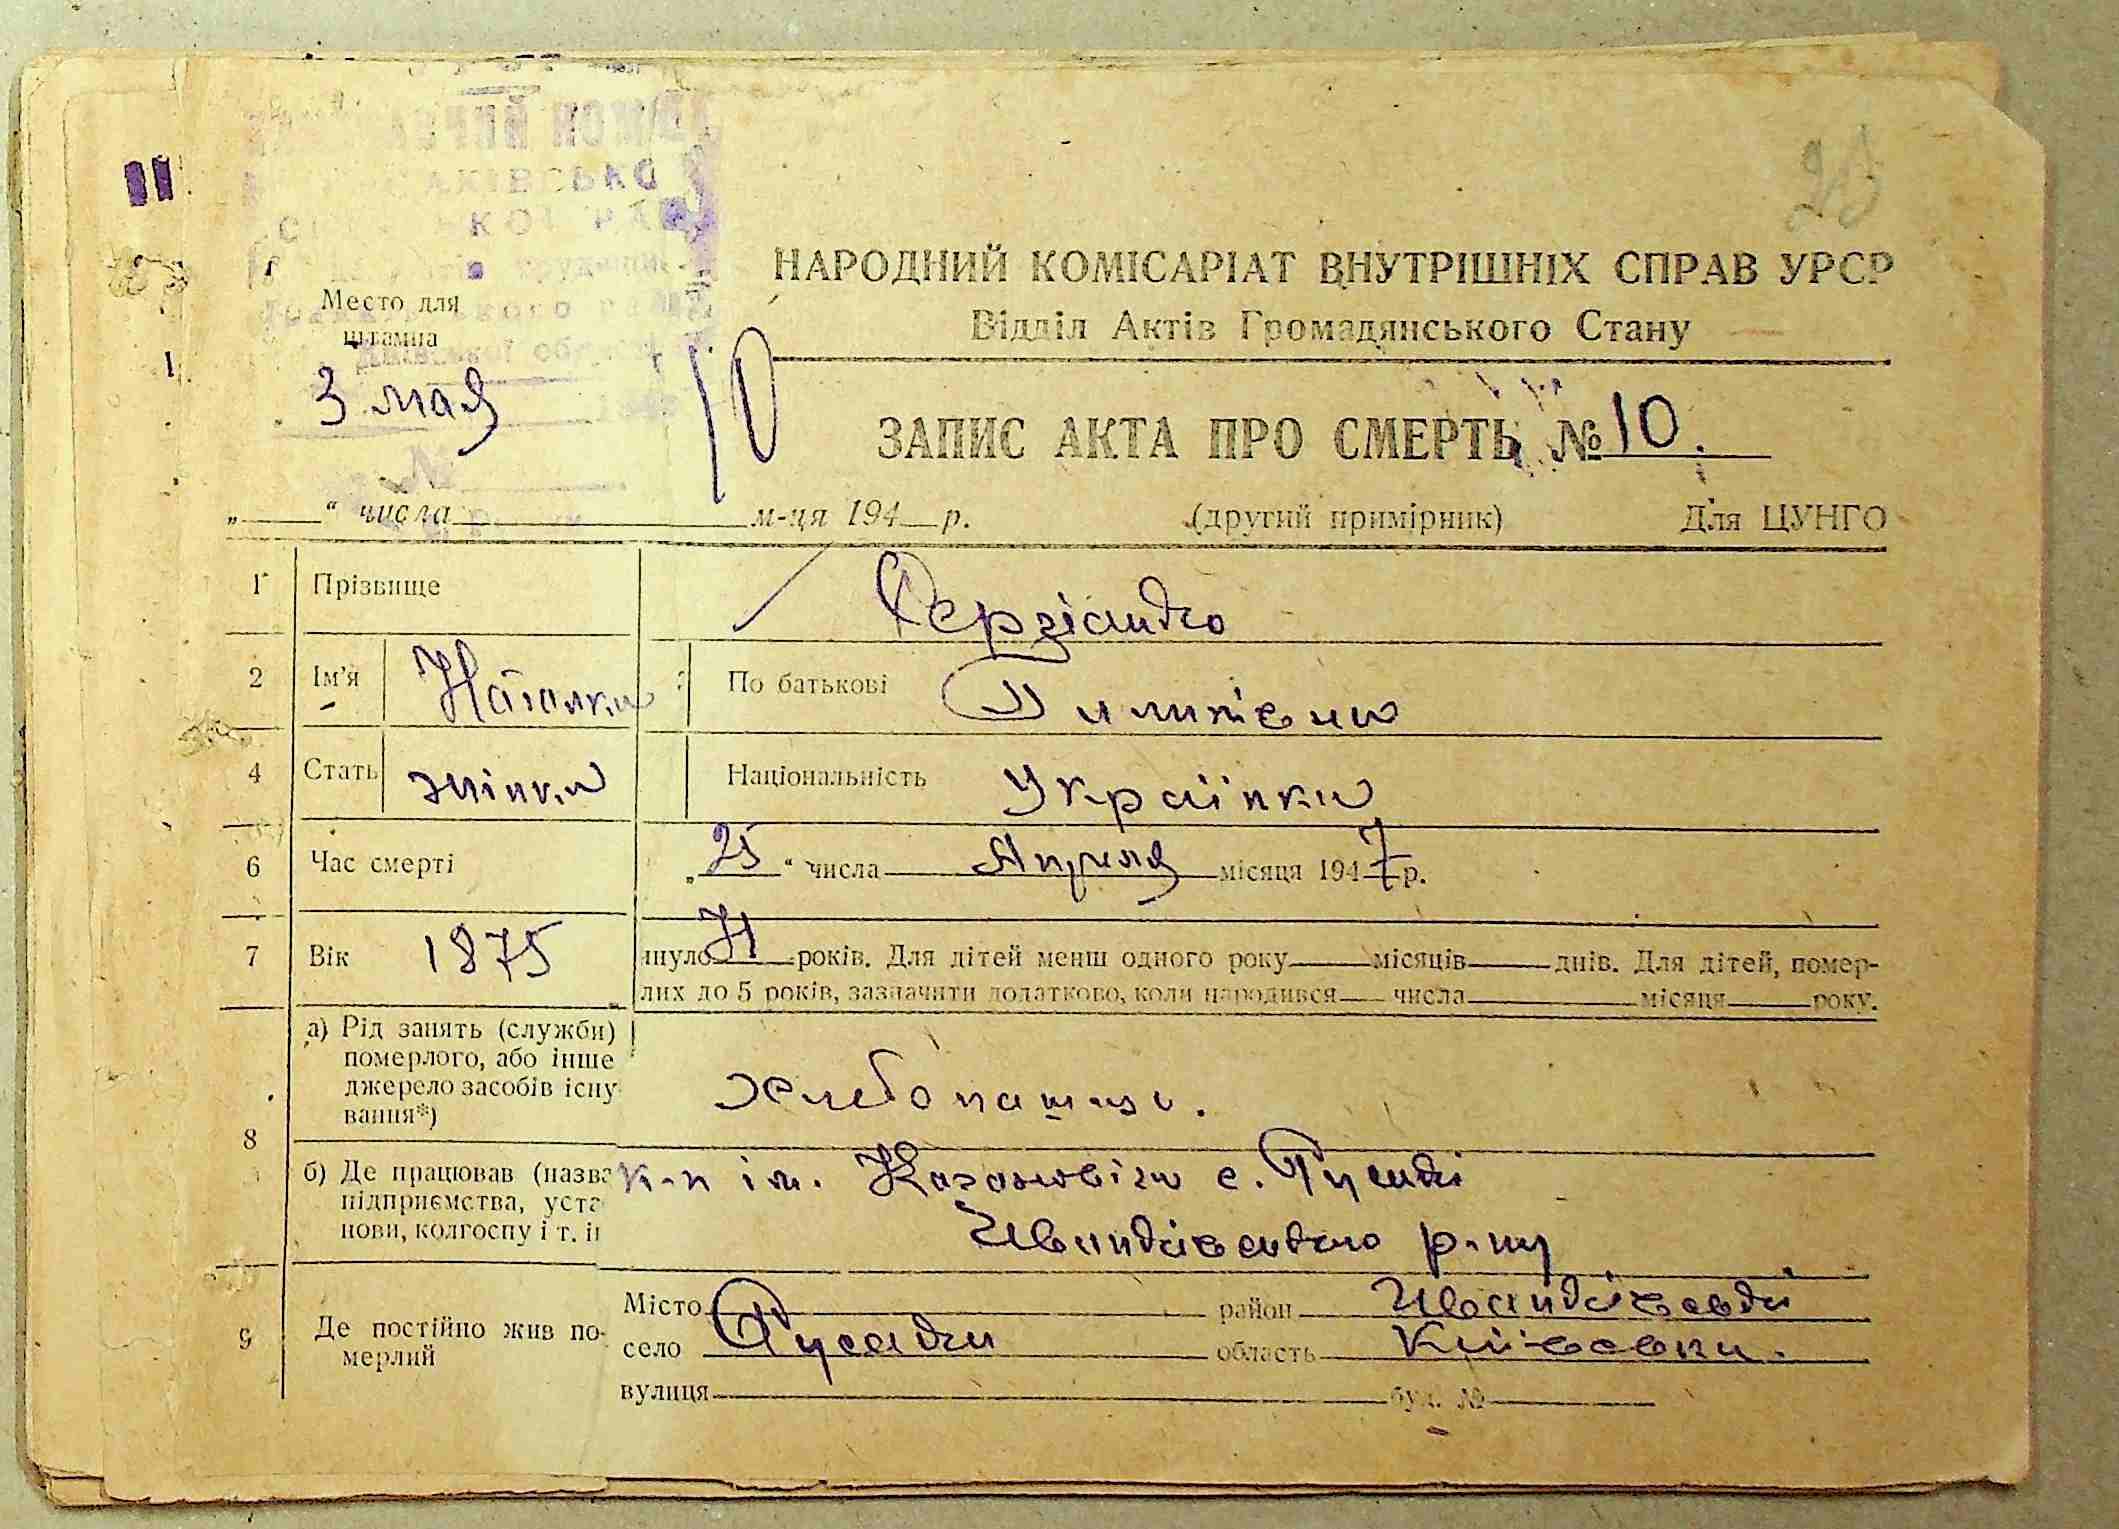 Место для
штампа
3 мая
10
НАРОДНИЙ КОМІСАРІАТ ВНУТРІШНІХ СПРАВ УРСР
Відділ Актів Громадянського Стану
ЗАПИС АКТА ПРО СМЕРТЬ № 10.
„ “ числа м-ця 194 р. (другий примірник) Для ЦУНГО
1 Прізвище
2 Ім'я Наталка По батькові Пилипівна
4 Стать жінка Національність Українка
6 Час смерті „25“ числа Апреля місяця 1947 р.
7 Вік 1875 років. Для дітей менш одного року місяців днів. Для дітей, помер-
лих до 5 років, зазначити додатково, коли народився числа місяця року.
8 а) Рід занять (служби)
померлого, або інше
джерело засобів існу
вання*)
б) Де працював (назва
підприємства, уста
нови, колгоспу і т. ін
к-п ім. Кагановіча с.
р-ну
9 Де постійно жив по-
мерлий
Місто район
село область Київська.
вулиця буд. №